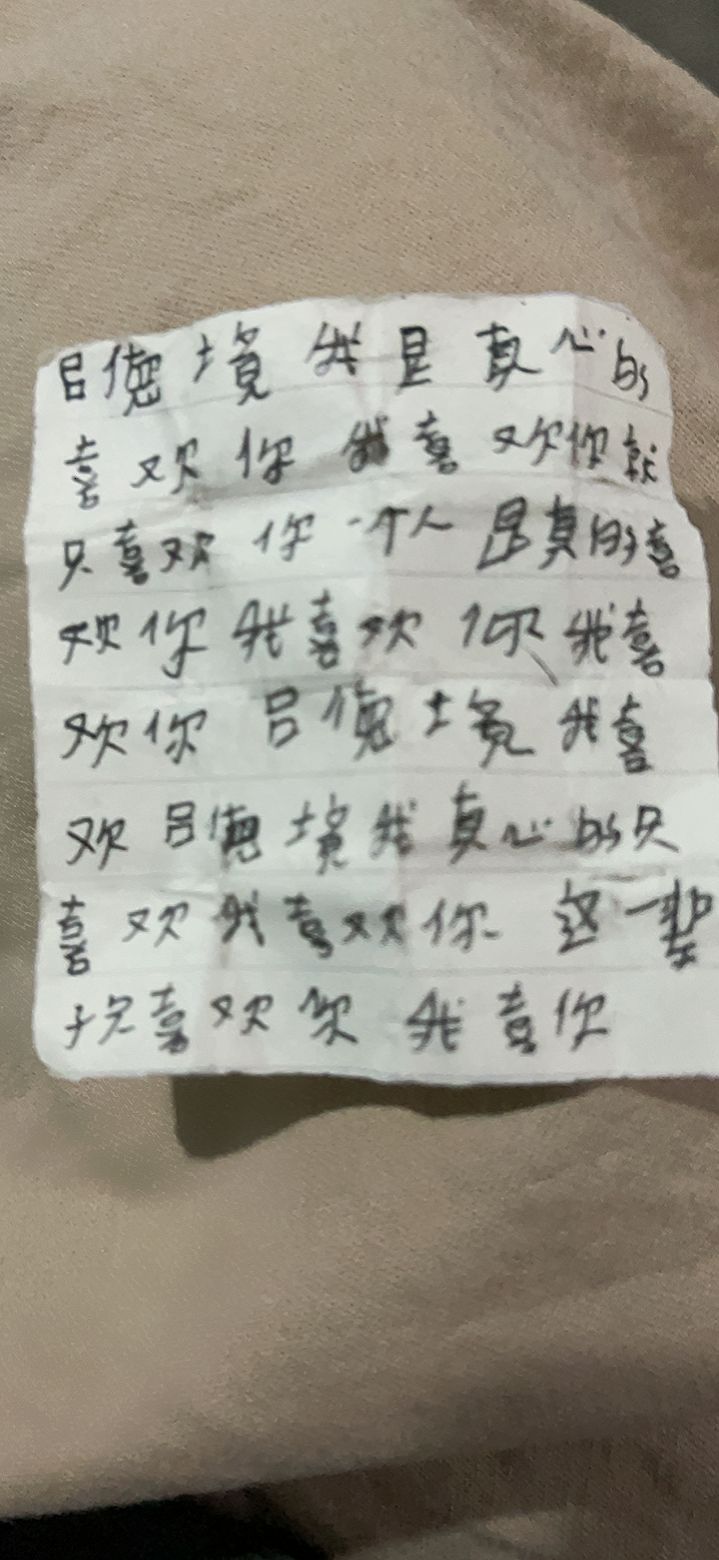 吕德境我是真心的
喜欢你我喜欢你就
只喜欢你一个人是真的喜
欢你我喜欢你我喜
欢你吕德境我喜
欢吕德境我真心的只
喜欢我喜欢你这一辈
子只喜欢你我喜你